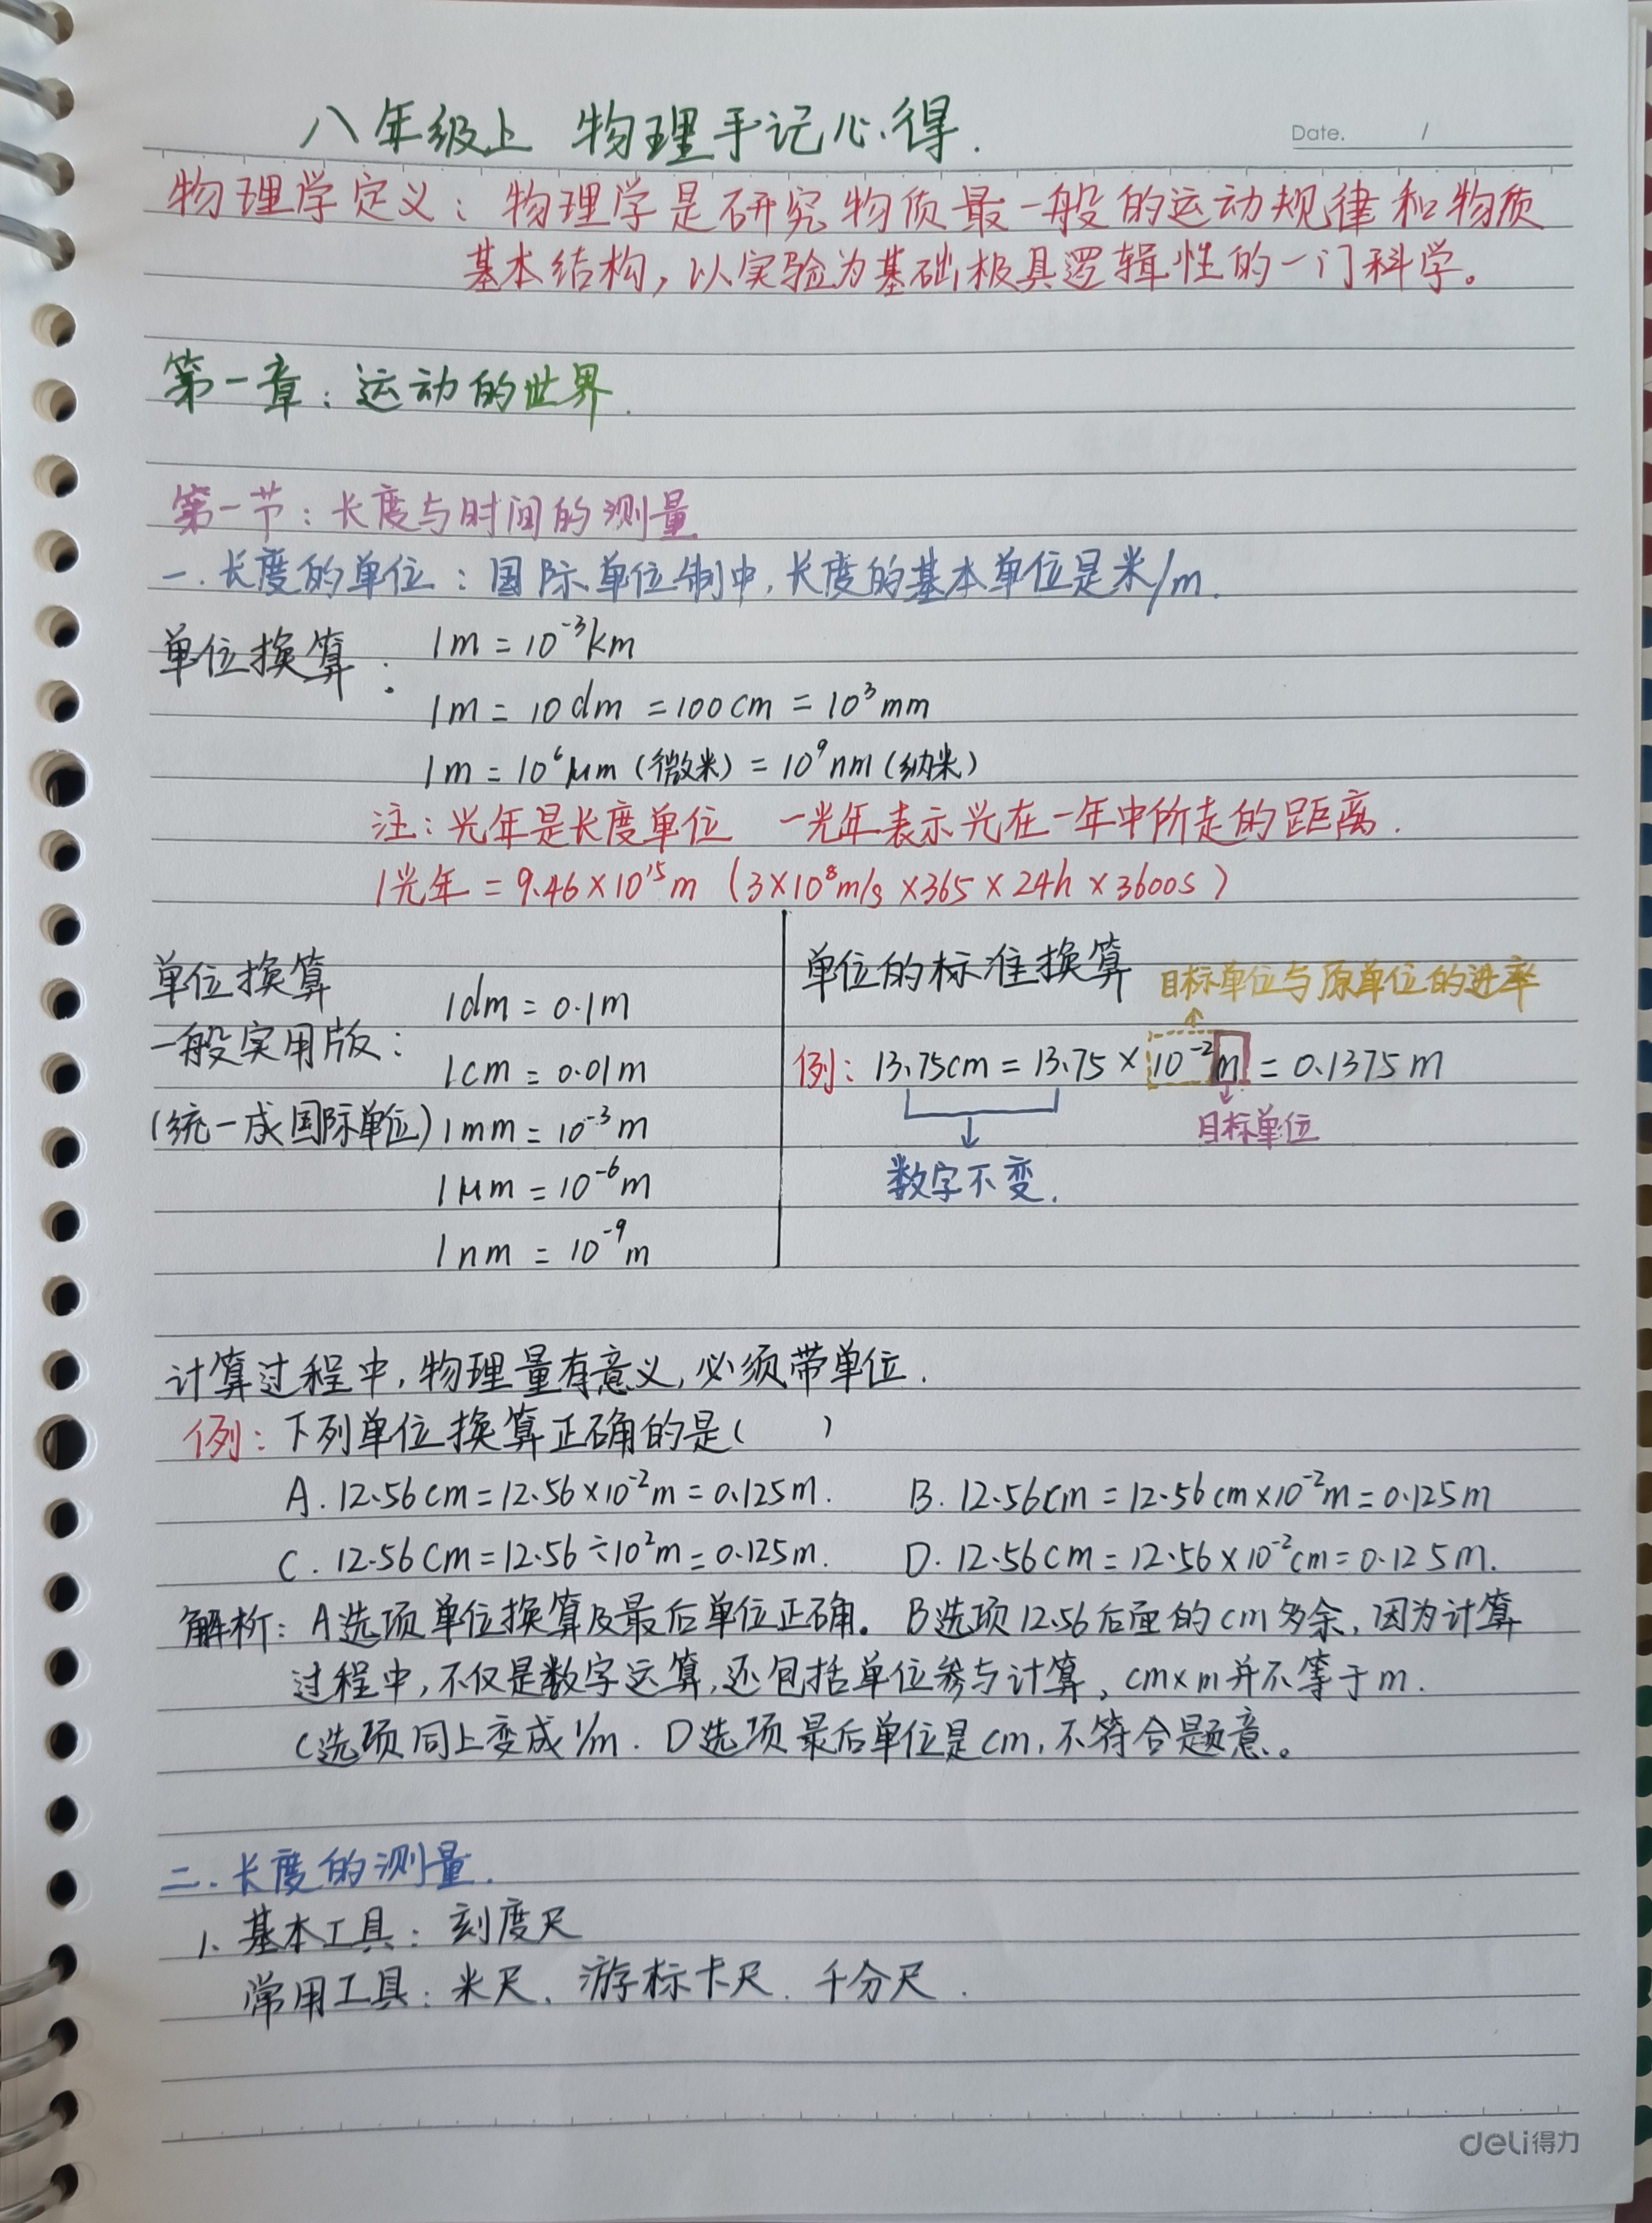 八年级上 物理手记心得.
Date. /
物理学定义：物理学是研究物质最一般的运动规律和物质
基本结构，以实验为基础极具逻辑性的一门科学。
第一章：运动的世界.
第一节：长度与时间的测量
一.长度的单位：国际单位制中,长度的基本单位是米/m.
单位换算：
1m=10⁻³km
1m=10dm=100cm=10³mm
1m=10⁶μm(微米)=10⁹nm(纳米)
注：光年是长度单位 一光年表示光在一年中所走的距离.
1光年=9.46×10¹⁵m (3×10⁸m/s×365×24h×3600s)
单位换算
一般实用版：
(统一成国际单位)
1dm=0.1m
1cm=0.01m
1mm=10⁻³m
1μm=10⁻⁶m
1nm=10⁻⁹m
单位的标准换算
目标单位与原单位的进率
例：13.75cm=13.75×10⁻²m=0.1375m
目标单位
数字不变.
计算过程中,物理量有意义,必须带单位.
例：下列单位换算正确的是( )
A.12.56cm=12.56×10⁻²m=0.125m. B.12.56cm=12.56cm×10⁻²m=0.125m
C.12.56cm=12.56÷10²m=0.125m. D.12.56cm=12.56×10⁻²cm=0.125m.
解析：A选项单位换算及最后单位正确。B选项12.56后面的cm多余,因为计算
过程中,不仅是数字运算,还包括单位参与计算,cm×m并不等于m.
C选项同上变成1/m. D选项最后单位是cm,不符合题意。
二.长度的测量.
1、基本工具：刻度尺
常用工具：米尺、游标卡尺、千分尺.
deli得力